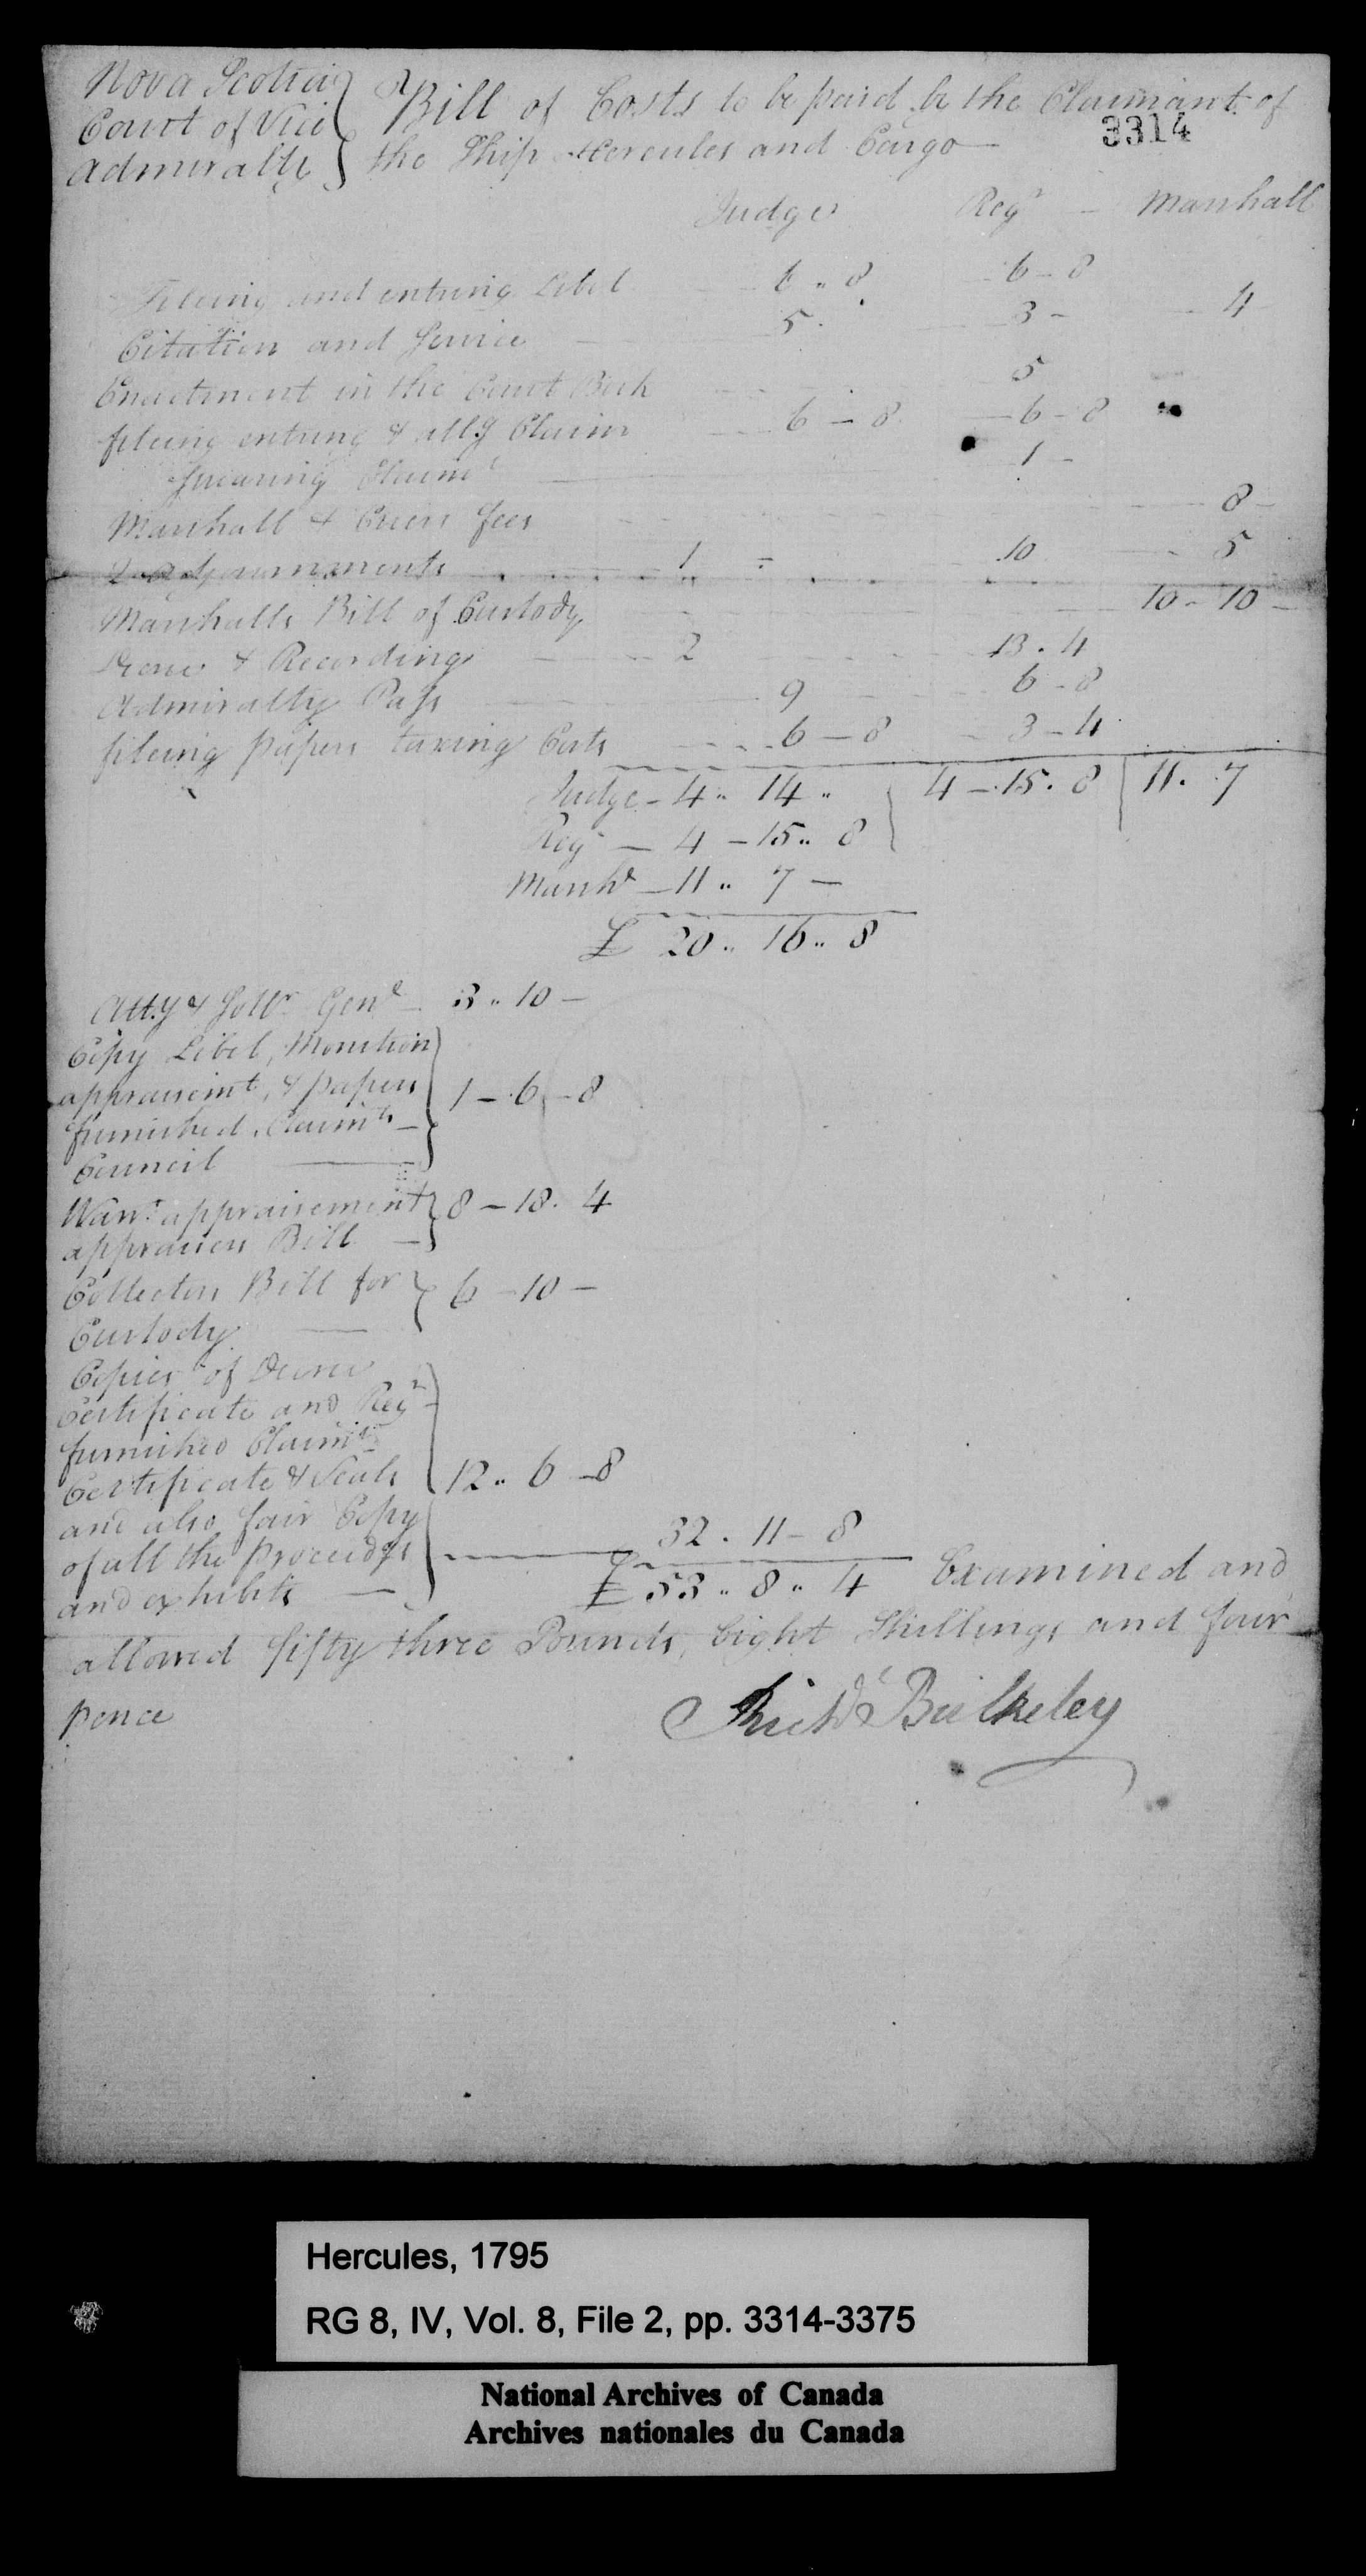 Nova Scotia } A Bill of Costs to be paid by the Claimant of
Court of Vice
Admiralty } the Ship Hercules and Cargo —
3314
Judge Regr — Marshall
Fileing and entring Libel 6 .. 8 6 - 8
Citation and Service — 5 3 - 4
Enactment in the Court Book 5
fileing entring & allg Claim 6 - 8 6 - 8
Swearing Claimt — 1 -
Marshall & Criers fees 8 -
2 adjournments 1 - 10 5
Marshalls Bill of Custody 10 - 10 -
Decree & Recording 2 13 . 4
Admiralty Pass 9 6 - 8
fileing papers taxing Costs 6 - 8 3 - 4
Judge - 4 .. 14 .. 4 - 15 . 8 11 . 7
Regr — 4 - 15 .. 8
Marshl — 11 .. 7 —
£ 20 .. 16 .. 8
Atty & Sollr Genl — 3 .. 10 —
Copy Libel, Monition
appraisemt, & papers } 1 - 6 - 8
furnished Claimts —
Council —
Warrt appraisement } 8 - 18 . 4
appraisers Bill —
Collectors Bill for } 6 - 10 —
Custody —
Copies of Decree
Certificate and Regr
furnished Claimts
Certificate & Seals } 12 .. 6 - 8
and also fair Copy
of all the proceedgs 32 . 11 - 8
and exhibits — £ 53 .. 8 .. 4 Examined and
allowed fifty three Pounds, Eight Shillings and four
pence Richd Bulkeley
Hercules, 1795
RG 8, IV, Vol. 8, File 2, pp. 3314-3375
National Archives of Canada
Archives nationales du Canada